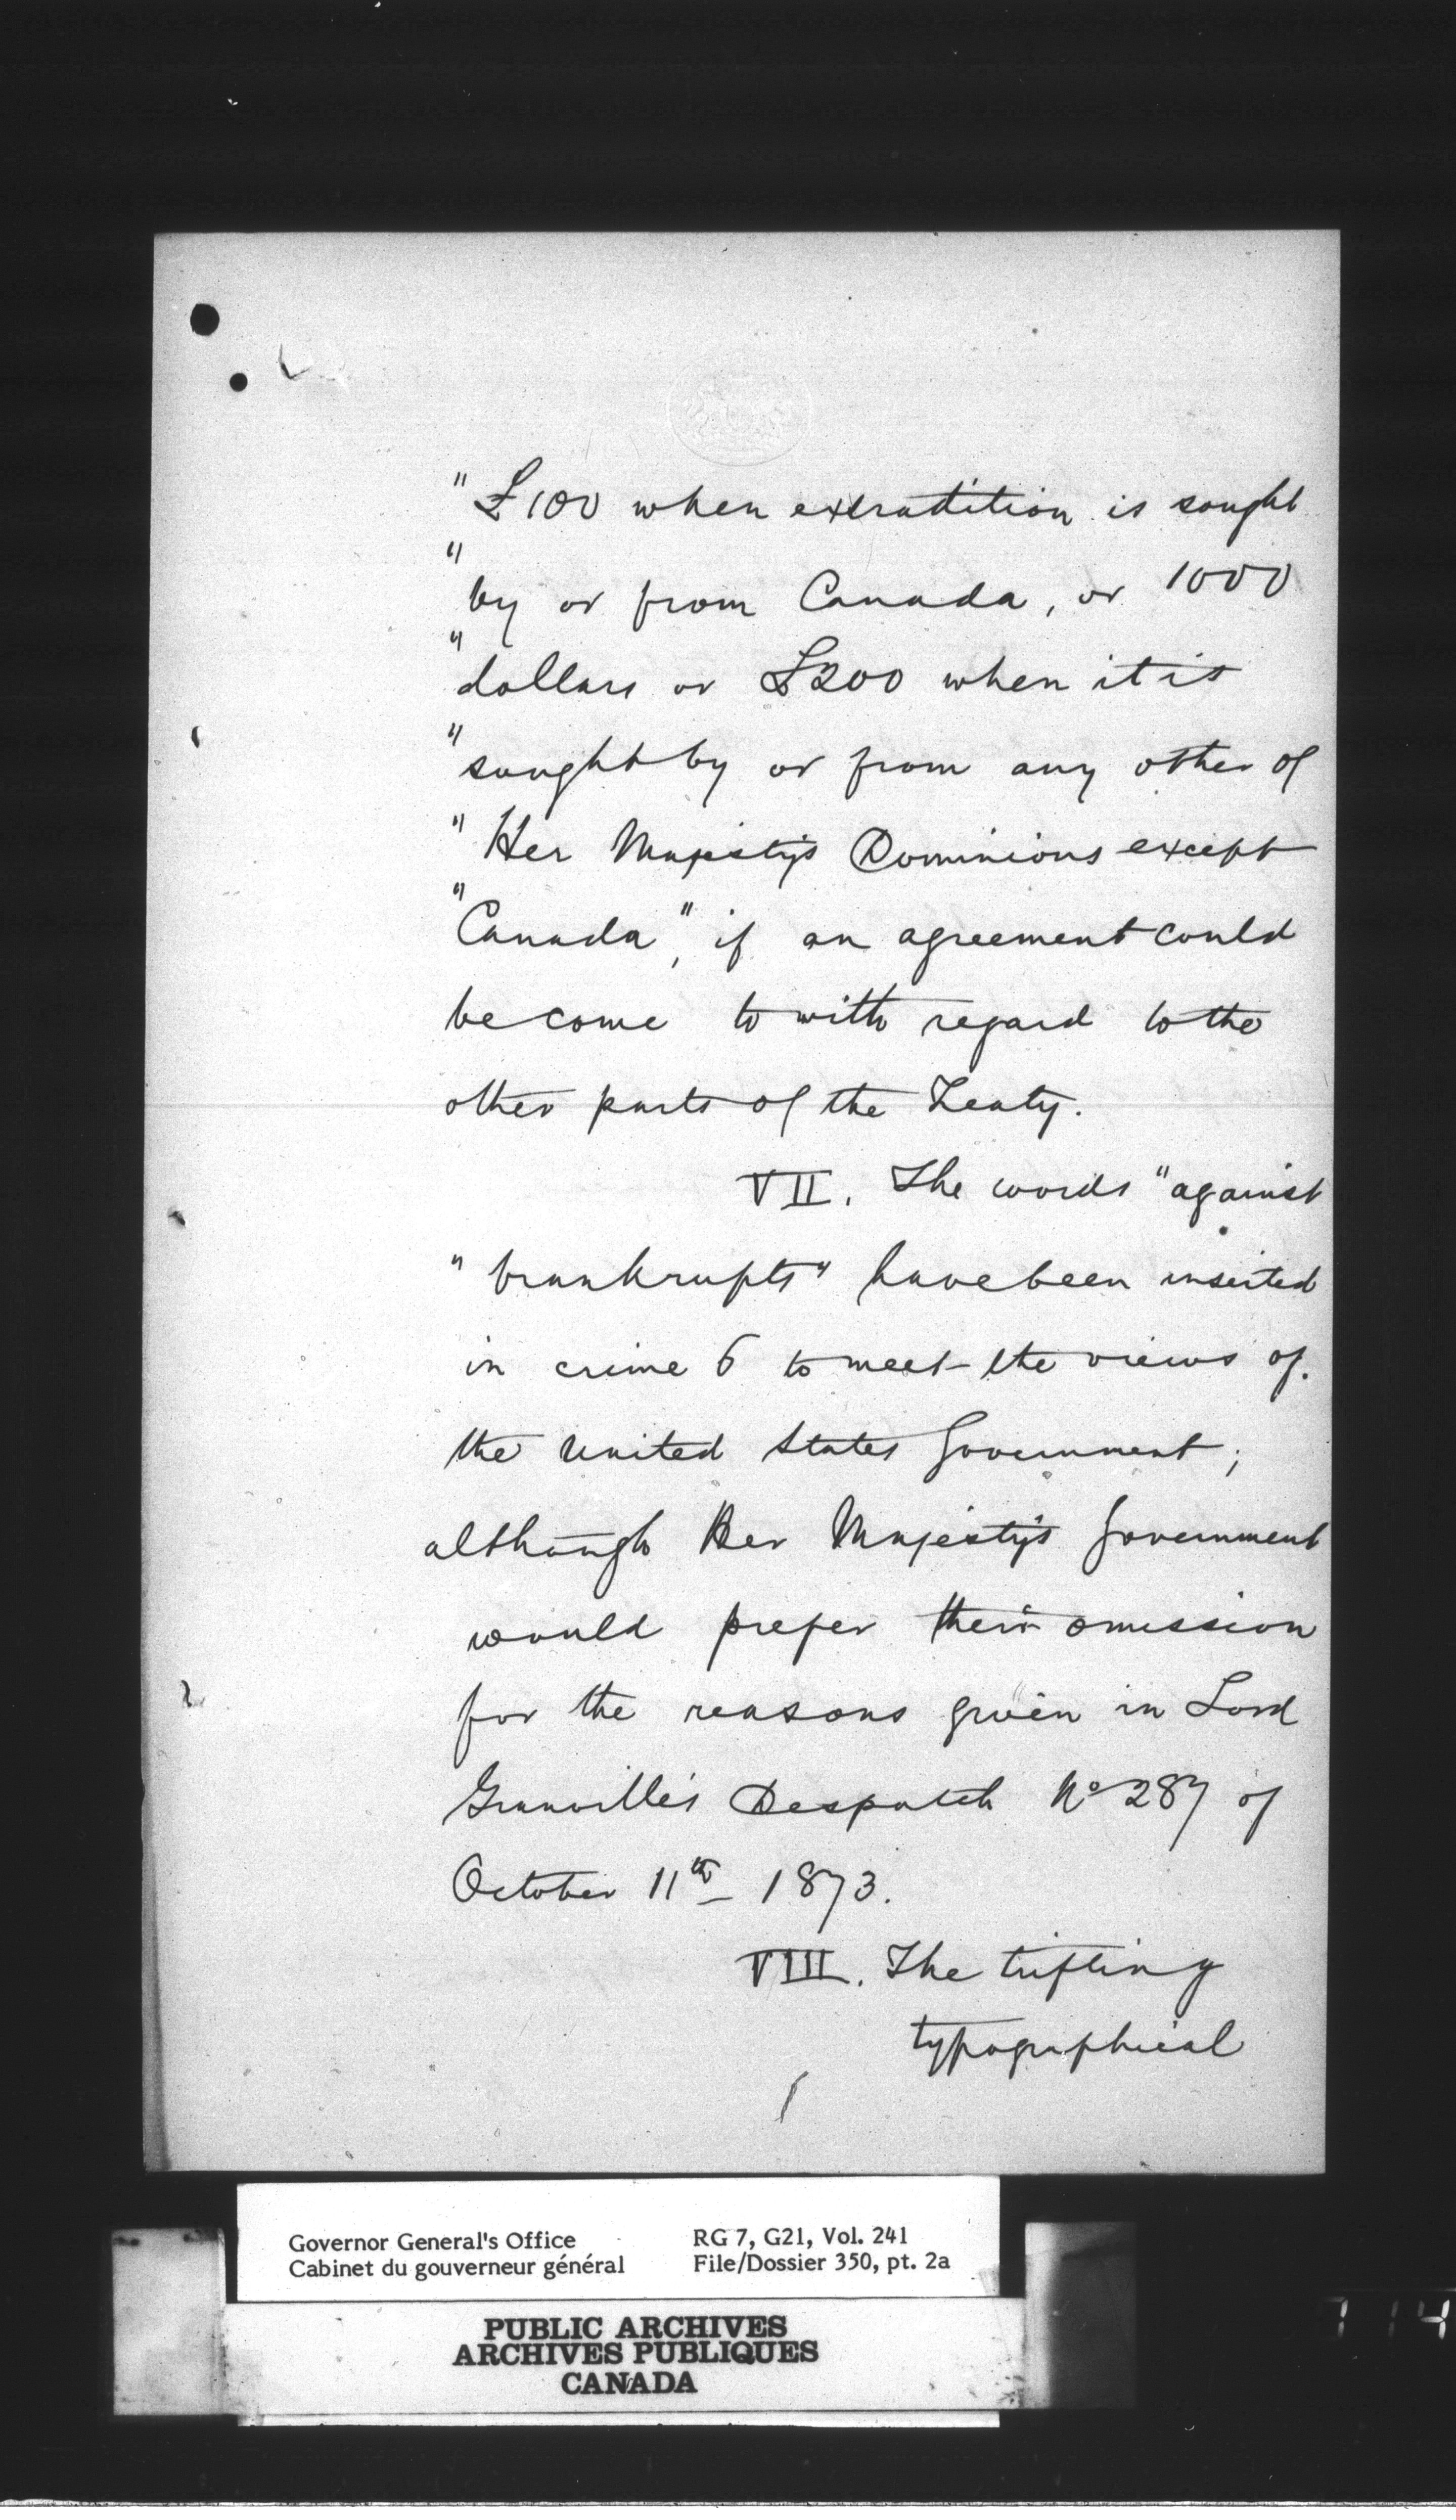 "£100 when extradition is sought
"by or from Canada, or 1000
"dollars or £200 when it is
"sought by or from any other of
"Her Majesty's Dominions except
"Canada", if an agreement could
be come to with regard to the
other parts of the Treaty.
VII. The words "against
"bankrupts" have been inserted
in crime 6 to meet the views of
the United States Government;
although Her Majesty's Government
would prefer their omission
for the reasons given in Lord
Granville's Despatch No 287 of
October 11th 1873.
VIII. The trifling
typographical
Governor General's Office
Cabinet du gouverneur général
RG 7, G21, Vol. 241
File/Dossier 350, pt. 2a
PUBLIC ARCHIVES
ARCHIVES PUBLIQUES
CANADA
114